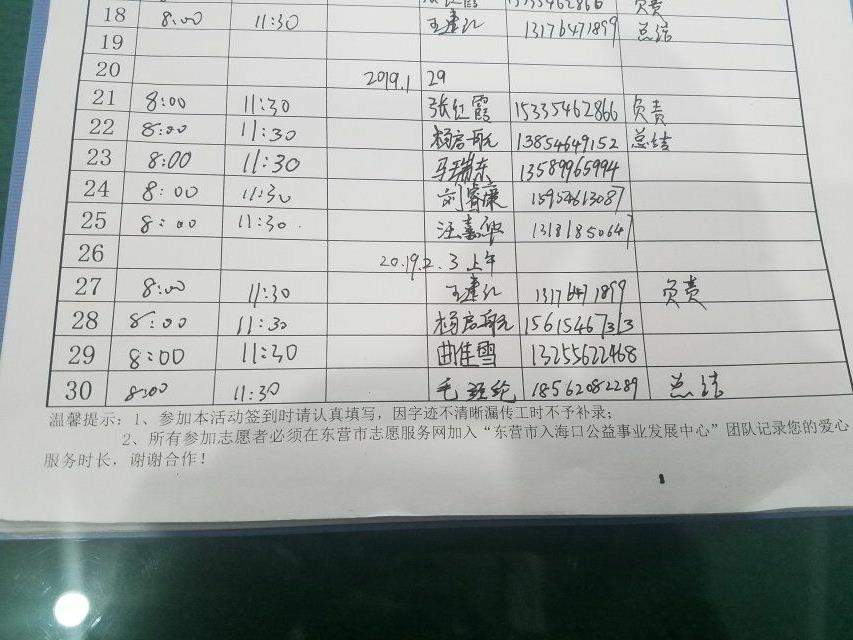 15335462866 负责
18 8:00 11:30 王建红 13176471899 总结
19
20 2019.1 29
21 8:00 11:30 张红霞 15335462866 负责
22 8:00 11:30 杨启航 13854649152 总结
23 8:00 11:30 马瑞东 13589965994
24 8:00 11:30 刘睿康 15954613087
25 8:00 11:30. 汪嘉华 13181850647
26 2019.2.3上午
27 8:00 11:30 王建红 13176471899 负责
28 8:00 11:30 杨启航 15615467313
29 8:00 11:30 曲佳雪 13255622468
30 8:00 11:30 毛经纶 18562082289 总结
温馨提示:1、参加本活动签到时请认真填写,因字迹不清晰漏传工时不予补录;
2、所有参加志愿者必须在东营市志愿服务网加入“东营市入海口公益事业发展中心”团队记录您的爱心
服务时长,谢谢合作!